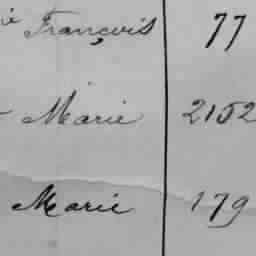 François 77
Marie 2152
Marie 179